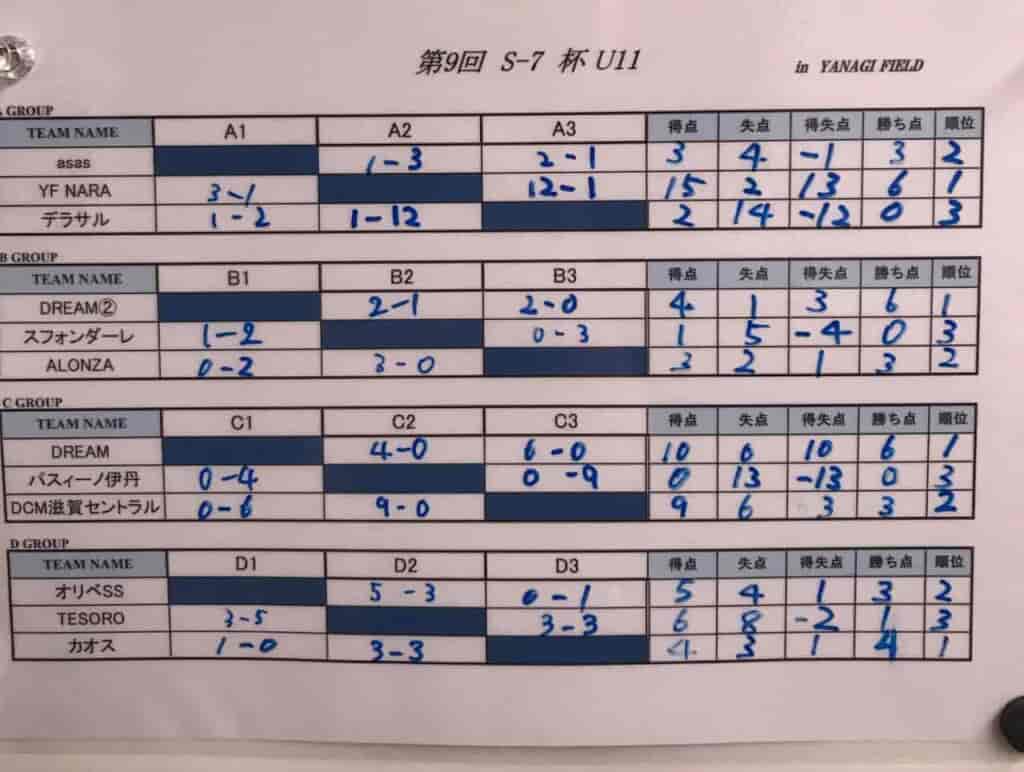 第9回 S-7 杯 U11 in YANAGI FIELD
GROUP
TEAM NAME A1 A2 A3 得点 失点 得失点 勝ち点 順位
asas 1-3 2-1 3 4 -1 3 2
YF NARA 3-1 12-1 15 2 13 6 1
デラサル 1-2 1-12 2 14 -12 0 3
B GROUP
TEAM NAME B1 B2 B3 得点 失点 得失点 勝ち点 順位
DREAM② 2-1 2-0 4 1 3 6 1
スフォンダーレ 1-2 0-3 1 5 -4 0 3
ALONZA 0-2 3-0 3 2 1 3 2
C GROUP
TEAM NAME C1 C2 C3 得点 失点 得失点 勝ち点 順位
DREAM 4-0 6-0 10 0 10 6 1
パスィーノ伊丹 0-4 0-9 0 13 -13 0 3
DCM滋賀セントラル 0-6 9-0 9 6 3 3 2
D GROUP
TEAM NAME D1 D2 D3 得点 失点 得失点 勝ち点 順位
オリベSS 5-3 0-1 5 4 1 3 2
TESORO 3-5 3-3 6 8 -2 1 3
カオス 1-0 3-3 4 3 1 4 1